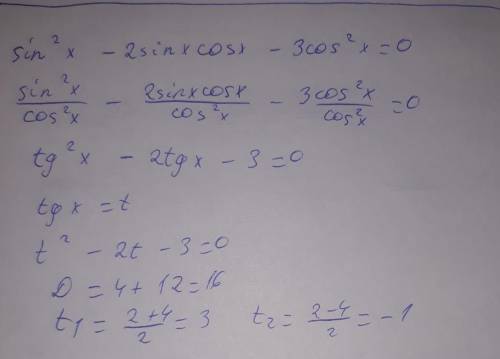 sin²x - 2sinxcosx - 3cos²x = 0
sin²x/cos²x - 2sinxcosx/cos²x - 3cos²x/cos²x = 0
tg²x - 2tgx - 3 = 0
tgx = t
t² - 2t - 3 = 0
D = 4 + 12 = 16
t₁ = (2+4)/2 = 3 t₂ = (2-4)/2 = -1